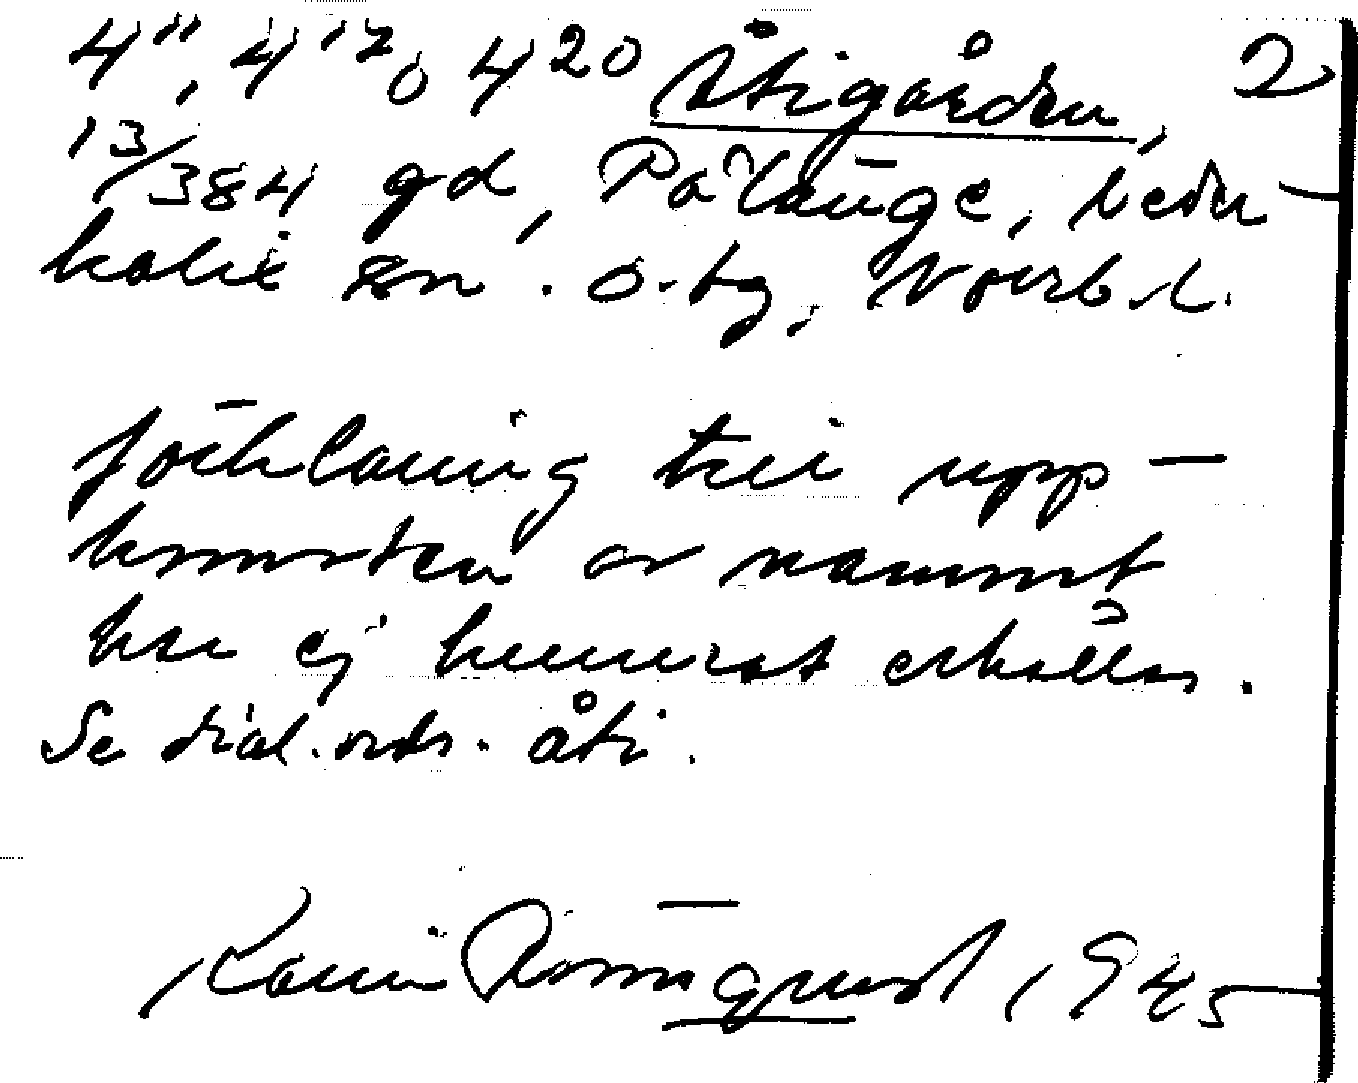 4¹¹, 4¹⁷ o 4²⁰ Åtigården, 2
13/384 gd, Pålänge, Neder-
kalix sn. o. tg, Norrb. l.
förklaring till upp-
komsten av namnet
har ej kunnat erhållas.
Se dial. ordr. åti.
Karin Rönnquist, 1945